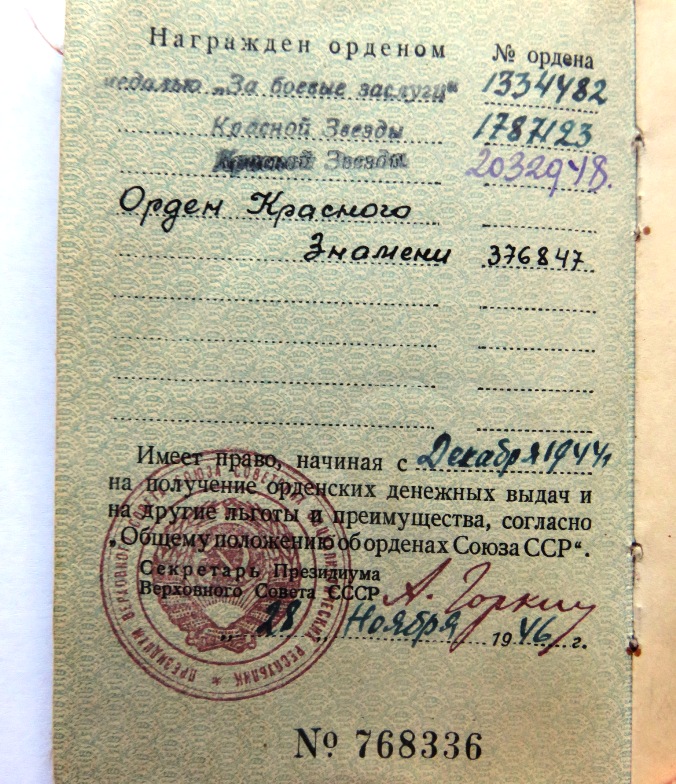 Награжден орденом № ордена
медалью „За боевые заслуги“ 1334482
Красной Звезды 1787123
Красной Звезды 2032948.
Орден Красного
Знамени 376847
Имеет право, начиная с Декабря 1944г.
на получение орденских денежных выдач и
на другие льготы и преимущества, согласно
„Общему положению об орденах Союза ССР“.
Секретарь Президиума
Верховного Совета СССР А. Горкин
„28„ Ноября 1946 г.
№ 768336